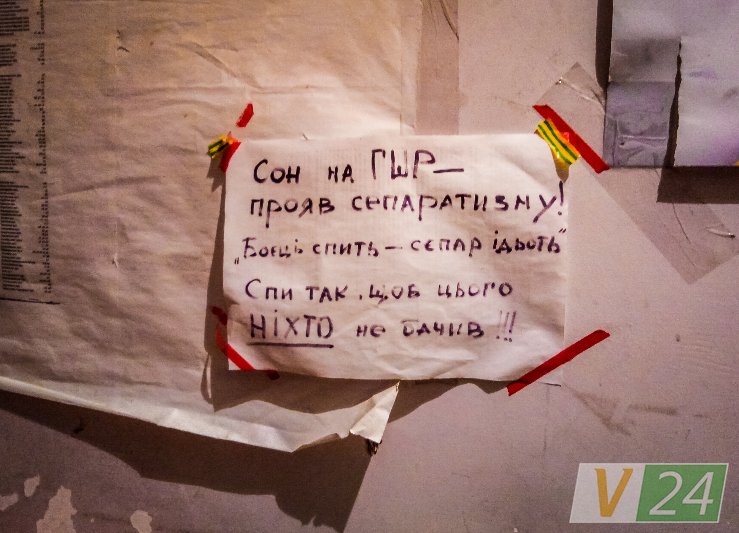 Сон на ГШР—
прояв сепаратизму!
„Боєць спить – сепар ідьоть"
Спи так, щоб цього
НІХТО не бачив!!!
V24